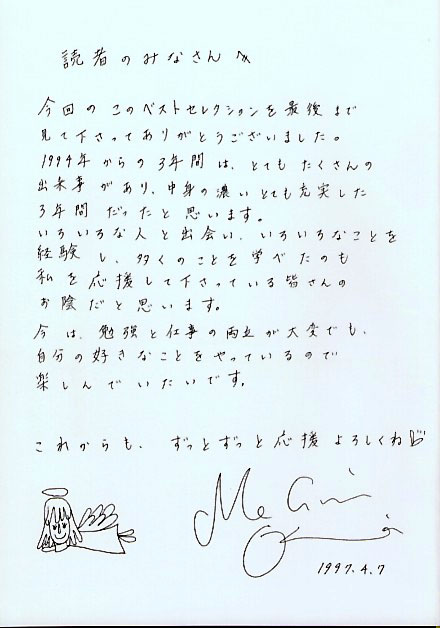 読者のみなさんへ
今回のこのベストセレクションを最後まで
見て下さってありがとうございました。
1994年からの3年間は、とてもたくさんの
出来事があり、中身の濃いとても充実した
3年間だったと思います。
いろいろな人と出会い、いろいろなことを
経験し、多くのことを学べたのも
私を応援して下さっている皆さんの
お陰だと思います。
今は、勉強と仕事の両立が大変でも、
自分の好きなことをやっているので
楽しんでいたいです。
これからも、ずっとずっと応援よろしくね
1997.4.7